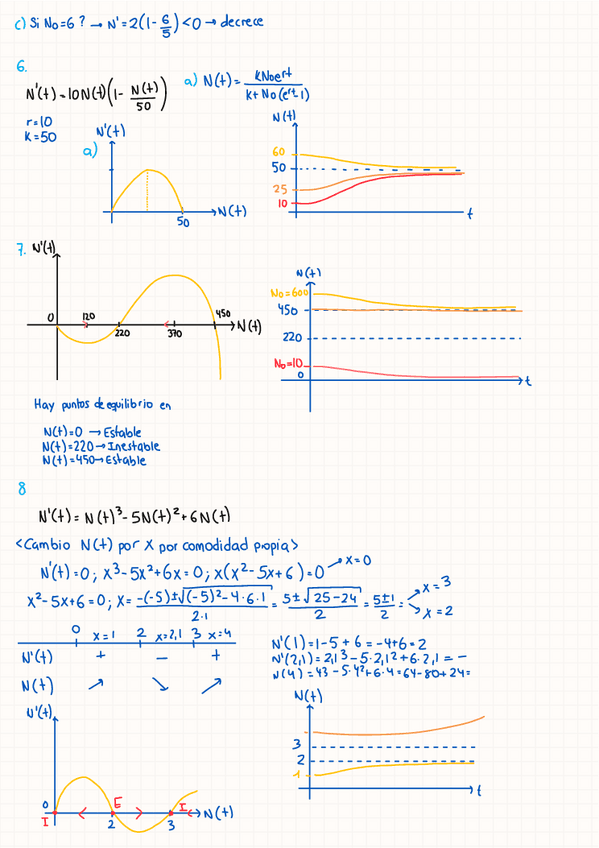 c) Si N₀=6? → N'=2(1-6/5)<0 → decrece
6.
N'(t)=10N(t)(1-N(t)/50)
a) N(t)= KN₀e^rt / K+N₀(e^rt-1)
r=10
K=50
a)
N'(t)
50
N(t)
N(t)
60
50
25
10
t
7.
N'(t)
0
120
220
370
450
N(t)
N(t)
N₀=600
450
220
N₀=10
0
t
Hay puntos de equilibrio en
N(t)=0 → Estable
N(t)=220 → Inestable
N(t)=450 → Estable
8
N'(t)=N(t)³-5N(t)²+6N(t)
<Cambio N(t) por X por comodidad propia>
N'(t)=0; x³-5x²+6x=0; x(x²-5x+6)=0 → x=0
x²-5x+6=0; x= -(-5)±√(-5)²-4·6·1 / 2·1 = 5±√25-24 / 2 = 5±1 / 2 = x=3
x=2
0 x=1 2 x=2,1 3 x=4
N'(t) + - +
N(t) ↗ ↘ ↗
N'(1)=1-5+6=-4+6=2
N'(2,1)=2,1³-5·2,1²+6·2,1=-
N(4)=43-5·4²+6·4=64-80+24=
N'(t)
0
I
E
2
I
3
N(t)
N(t)
3
2
1
t